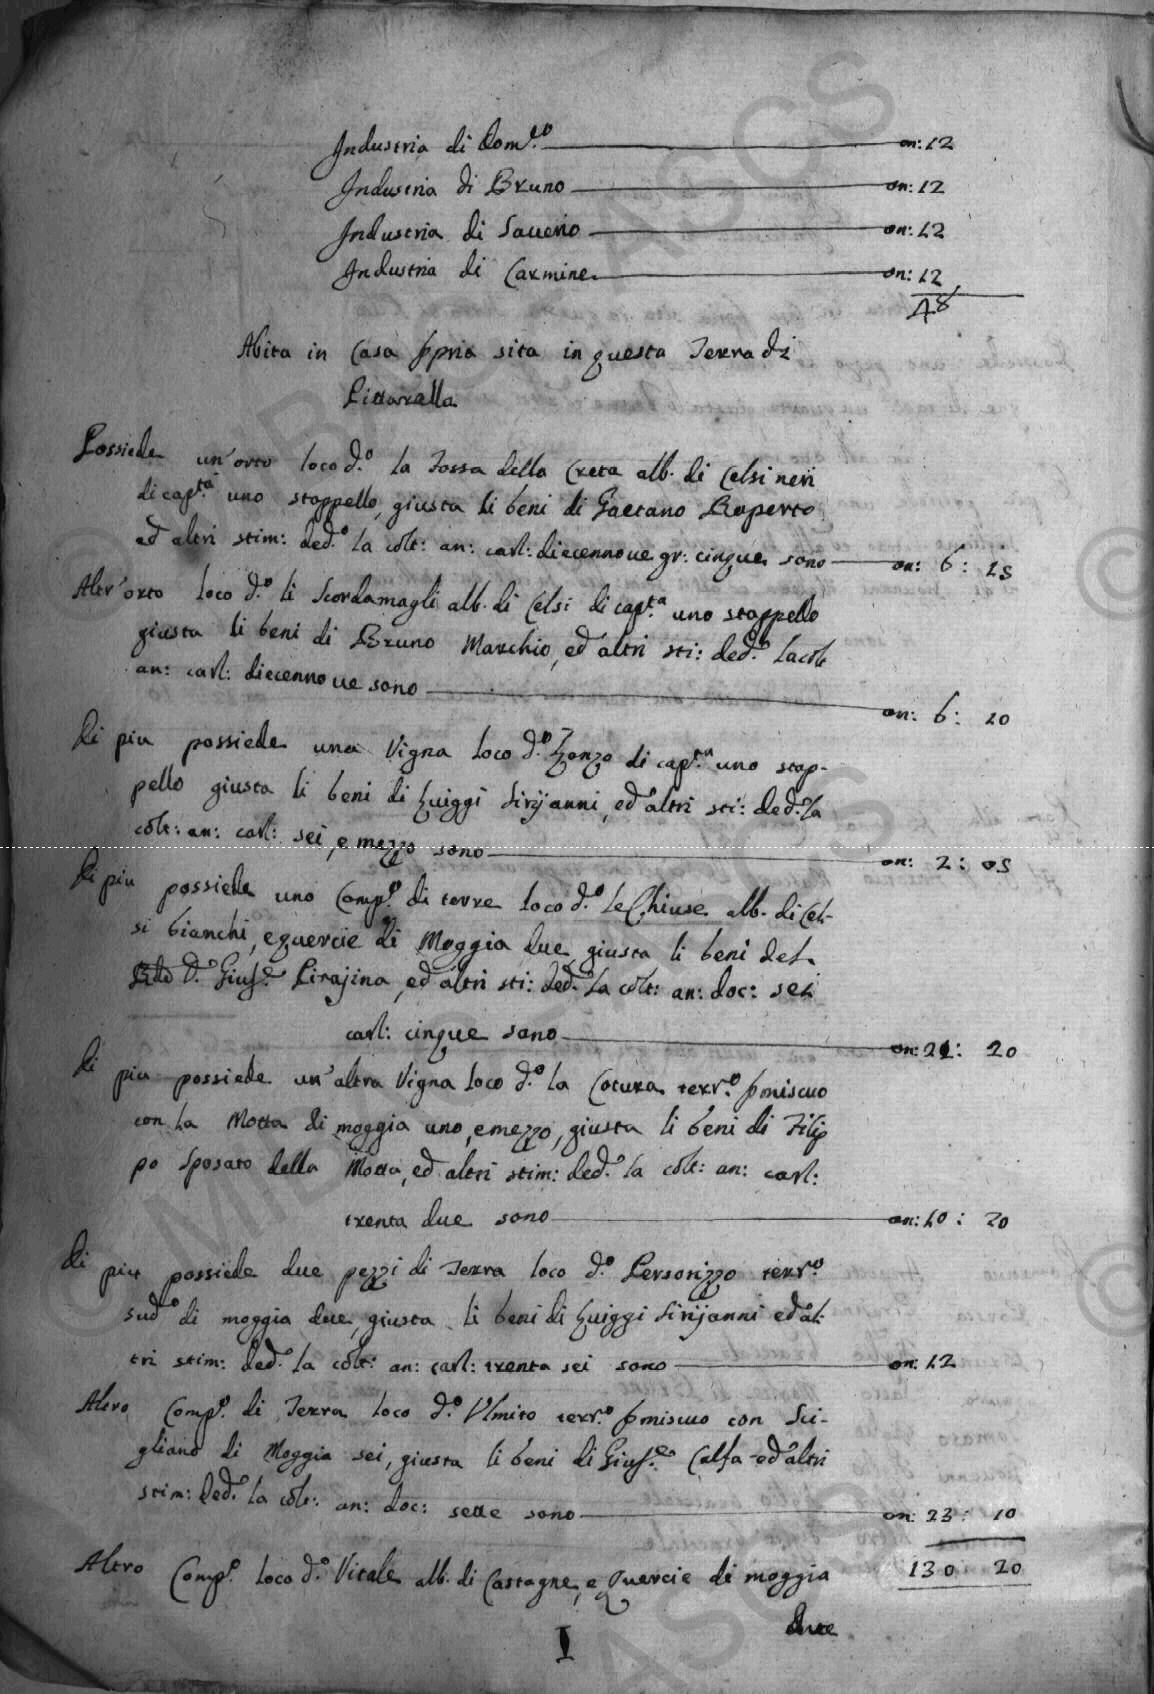 Industria di Dom.co on: 12
Industria di Bruno on: 12
Industria di Saverio on: 12
Industria di Carmine on: 12
48
Abita in Casa ppria sita in questa Terra di
Pittarella
Possiede un'orto loco d.o la Fossa della Creta alb. di Celsi neri
di cap.tà uno stoppello, giusta li beni di Gaetano Roperto
ed altri stim: ded.o la colt: an: carl: diecennove gr: cinque sono on: 6: 15
Altr'orto loco d.o li Scordamagli alb. di Celsi di cap.ta uno stoppello
giusta li beni di Bruno Marchio, ed altri sti: ded.o la colt
an: carl: diecennove sono on: 6: 10
Di piu possiede una Vigna loco d.o di cap.ta uno stop-
pello giusta li beni di Luiggi Sirijanni, ed altri sti: ded.o la
colt: an: carl: sei, e mezzo sono on: 2: 05
Di piu possiede uno Comp.o di terre loco d.o Le Chiuse alb. di Cel-
si bianchi, e quercie di Moggia due giusta li beni del
d. Gius.e Pirajina, ed altri sti: ded.o la colt: an: doc: sei
carl: cinque sono on: 21: 20
Di piu possiede un'altra Vigna loco d.o la Cotura terr.o pmiscuo
con la Motta di moggia uno, e mezzo, giusta li beni di Filip
po Sposato della Motta, ed altri stim: ded.o la colt: an: carl:
trenta due sono on: 10: 20
Di piu possiede due pezzi di Terra loco d.o Persorizzo terr.o
sud.o di moggia due, giusta li beni di Luiggi Sirijanni ed al-
tri stim: ded.o la colt: an: carl: trenta sei sono on: 12
Altro Comp.o di Terra loco d.o Vlmito terr.o pmiscuo con Sci-
gliano di Moggia sei, giusta li beni di Gius.e Calfa ed altri
stim: ded.o la colt: an: doc: sette sono on: 23: 10
Altro Comp.o loco d.o Vitale alb. di Castagne, e Quercie di moggia 130 20
due
I
© MIBAC - ASCS